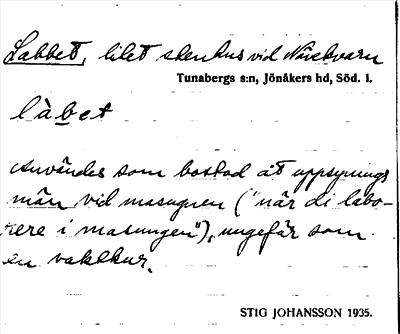 Labbet, litet stenhus vid Nävekvarn
Tunabergs s:n, Jönåkers hd, Söd. l.
làbet
Användes som bostad åt uppsynings
män vid masugnen ("när di labo-
rere i masungen"), ungefär som
en vaktkur.
STIG JOHANSSON 1935.